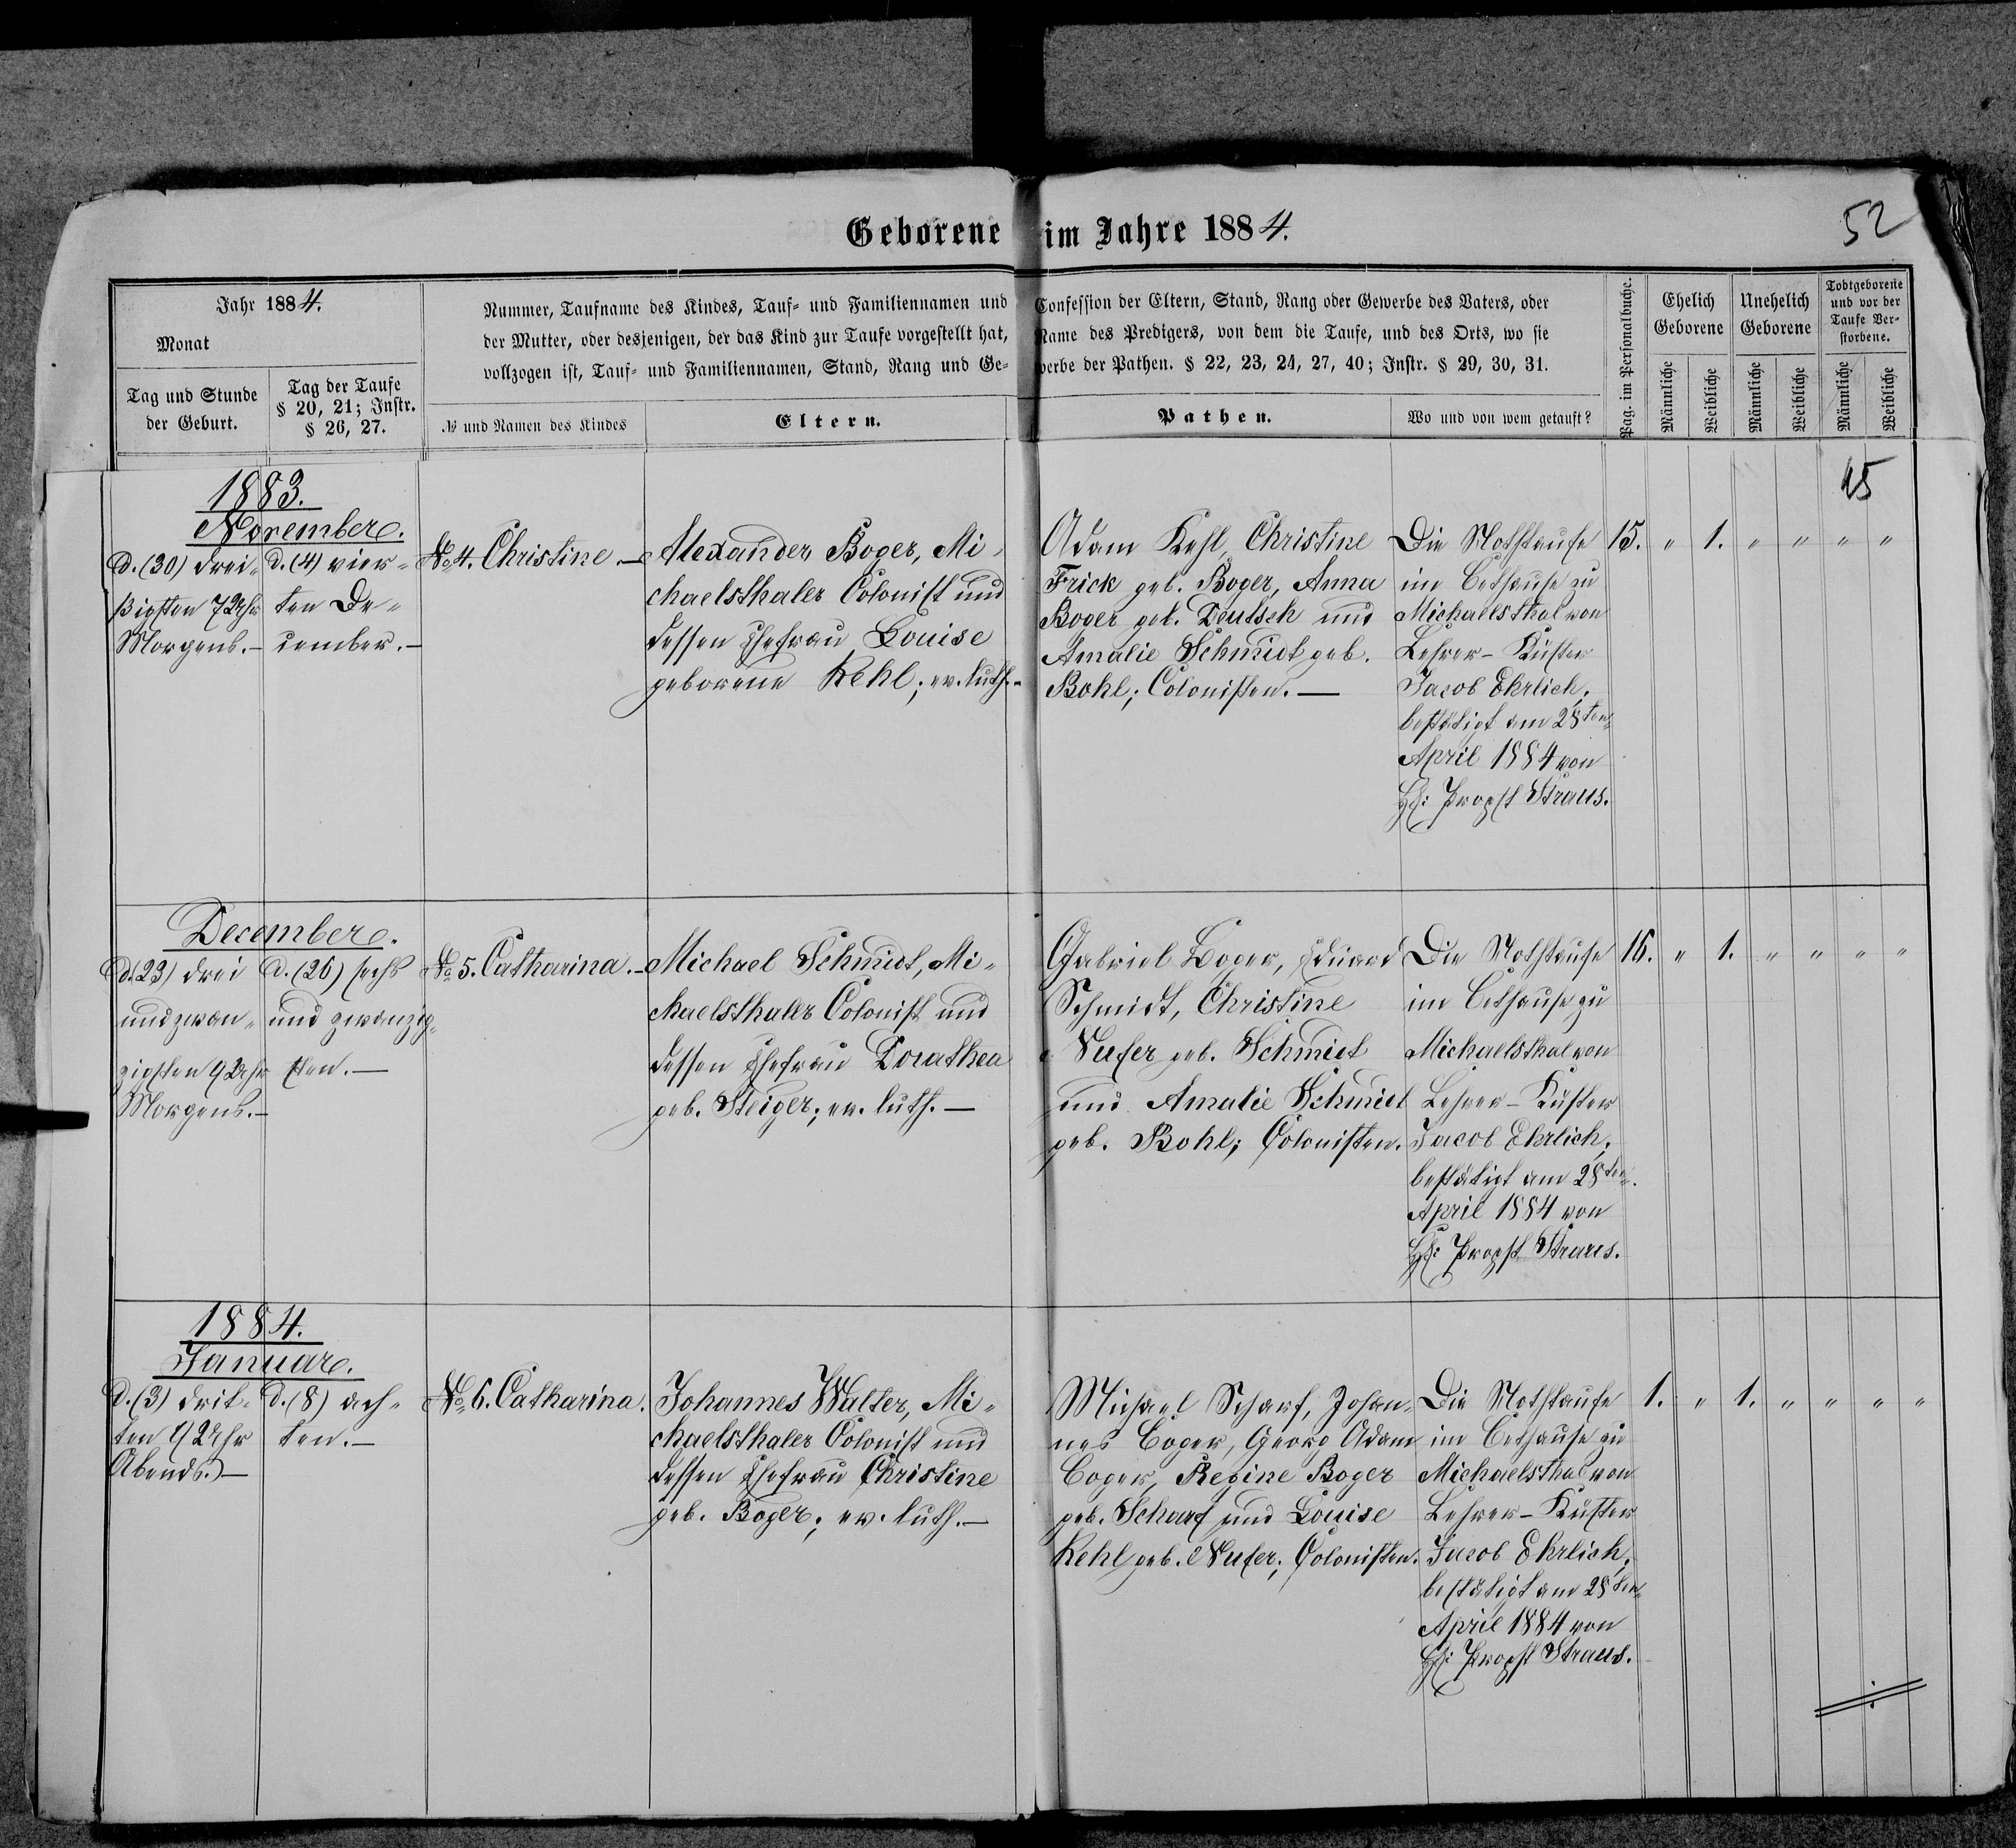 Geborene im Jahre 1884.
52
Jahr 1884.
Monat
Tag und Stunde
der Geburt.
Tag der Taufe
§ 20, 21; Instr.
§ 26, 27.
Nummer, Taufname des Kindes, Tauf- und Familiennamen und Confession der Eltern, Stand, Rang oder Gewerbe des Vaters, oder
der Mutter, oder desjenigen, der das Kind zur Taufe vorgestellt hat, Name des Predigers, von dem die Taufe, und des Orts, wo sie
vollzogen ist, Tauf- und Familiennamen, Stand, Rang und Gewerbe der Pathen. § 22, 23, 24, 27, 40; Instr. § 29, 30, 31.
№ und Namen des Kindes
Eltern.
Pathen.
Wo und von wem getauft?
Pag. im Personalbuche.
Ehelich
Geborene
Männliche
Weibliche
Unehelich
Geborene
Männliche
Weibliche
Todtgeborene
und vor der
Taufe Ver-
storbene.
Männliche
Weibliche
45
1883.
November.
d. (30) drei-
ßigsten 7 Uhr
Morgens.—
d. (4) vier-
ten De-
cember.—
№ 4. Christine.—
Alexander Boger, Mi-
chaelsthaler Colonist und
dessen Ehefrau Louise
geborene Kehl; ev. luth.-
Adam Kehl, Christine
Frick geb. Boger, Anna
Boger geb. Deutsch und
Amalie Schmidt geb.
Bohl; Colonisten.—
Die Nothtaufe
im Bethause zu
Michaelsthal von
Lehrer-Küster
Jacob Ehrlich;
bestätigt am 28ten
April 1884 von
H: Propst Straus.
15. " 1. " " " "
December.
d. (23) drei
und zwan-
zigsten 9 Uhr
Morgens.—
d. (26) sechs
und zwanzig-
sten.—
№ 5. Catharina.—
Michael Schmidt, Mi-
chaelsthaler Colonist und
dessen Ehefrau Dorathea
geb. Steiger; ev. luth.—
Gabriel Boger, Eduard
Schmidt, Christine
Nufer geb. Schmidt
und Amalie Schmidt
geb. Bohl; Colonisten.
Die Nothtaufe
im Bethause zu
Michaelsthal von
Lehrer-Küster
Jacob Ehrlich;
bestätigt am 28ten
April 1884 von
H: Propst Straus.
16. " 1. " " " "
1884.
Januar.
d. (3) drit-
ten 9 Uhr
Abends.—
d. (8) ach-
ten.—
№ 6. Catharina.
Johannes Walter, Mi-
chaelsthaler Colonist und
dessen Ehefrau Christine
geb. Boger; ev. luth.—
Michael Scharf, Johan-
nes Boger, Georg Adam
Boger, Regine Boger
geb. Scharf und Louise
Kehl geb. Nufer; Colonisten.
Die Nothtaufe
im Bethause zu
Michaelsthal von
Lehrer-Küster
Jacob Ehrlich;
bestätigt am 28ten
April 1884 von
H: Propst Straus.
1. " 1. " " " "